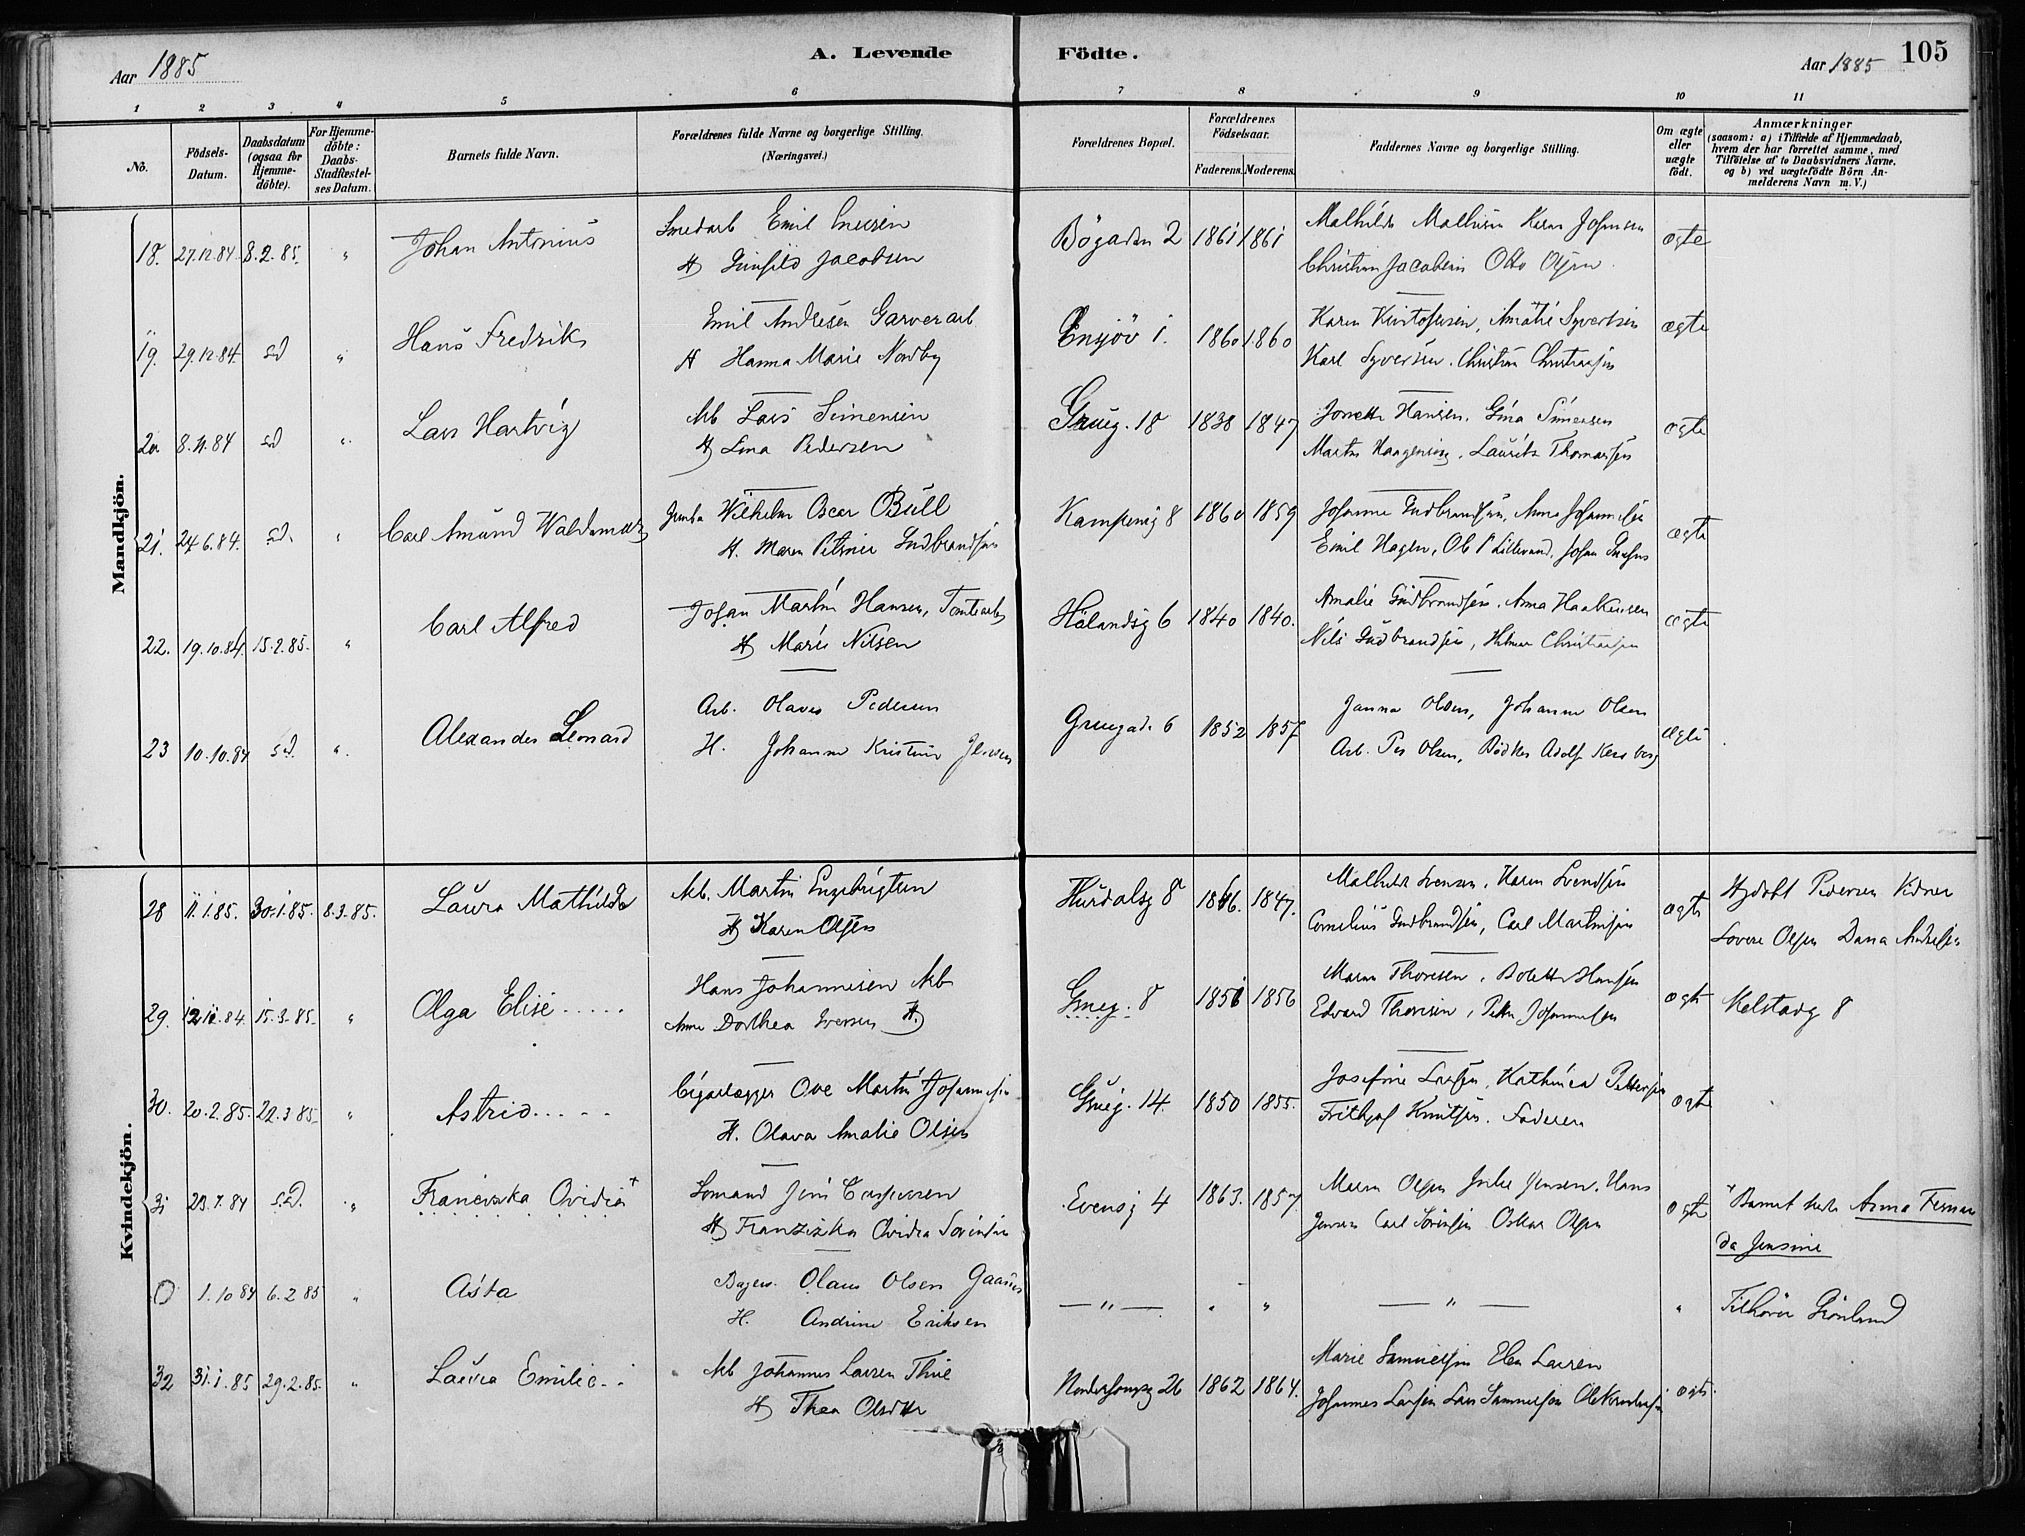 Aar 1885
A. Levende Födte.
Aar 1885
105
1 2 3 4 5 6 7 8 9 10 11
No.
Födsels-Datum.
Daabsdatum (ogsaa for Hjemmedöbte).
For Hjemmedöbte: Daabs-Stadfæstelses Datum.
Barnets fulde Navn.
Forældrenes fulde Navne og borgerlige Stilling. (Næringsvei.)
Forældrenes Bopæl.
Forældrenes Födselsaar.
Faderens. Moderens.
Faddernes Navne og borgerlige Stilling.
Om ægte eller uægte födt.
Anmærkninger
(saasom: a) i Tilfælde af Hjemmedaab, hvem der har forrettet samme, med Tilföielse af to Daabsvidners Navne. og b) ved uægtefödte Börn Anmelderens Navn m. V.)
Mandkjön.
18. 27.12.84. 8.2.85. " Johan Antonius
Emil
H Jacobsen
Bögaden 2 1861 1861
Karen Johnsen
Christian Jacobsen Otto Olsen
ægte
19. 29.12.84. sd " Hans Fredrik
Emil Andresen Garverarb
H Hanna Marie Nordby
Ensjöv 1. 1860 1860
Karen Kristofersen, Amalie Syversen
Karl Syversen. Christian Christiansen
ægte
20 8.11.84 sd " Lars Hartvig
Arb Lars Simensen
H Lina Pedersen
Grueg. 18 1838 1847
Hansen. Gina Simensen
Lauritz Thomassen
ægte
21. 24.6.84. sd. " Carl Amund Waldemar
Wilhelm Oscar Bull
H. Maren Petrine Gudbrandsen
Kampensg 8 1860 1859
Johanne Gudbrandsen, Anna Johannesen
Emil Hagen,
ægte
22. 19.10.84. 15.2.85. " Carl Alfred
Johan Martin Hansen,
H Marie Nilsen
Hölandsg 6 1840 1840.
Amalie Gudbrandsen. Anna Haakensen
Nils Gudbrandsen, Hilmar Christiansen
ægte
23 10.10.84 sd. " Alexander Leonard
Arb. Olaves Pedersen
H. Johanne Kristine Jensen
Gruegade 6 1852 1857
Janna Olsen, Johanne Olsen
Arb. Per Olsen, Bödker Adolf
ægte
Kvindekjön.
28 11.1.85. 30.1.85. 8.3.85. Laura Mathilde
Arb. Martin Engebrigtsen
H Karen Olsen
Hurdalsg 8 1846. 1847.
Mathilde Svensen, Karen Svendsen
Cornelius Gudbrandsen, Carl Martinsen
ægte
Hjdöbt Pedersen Vidner
Lovise Olsen Andresen
29. 12.12.84. 15.3.85. " Olga Elise
Hans Johannesen Arb
Anne Dorthea Iversen H.
Grueg. 8 1851 1856
Maren Thoresen, Bolette Hansen
Edvard Thoresen, Petter Johannesen
ægte
Kelstadg 8
30. 20.2.85. 22.3.85. " Astrid
Cigarlægger Ove Martin Johannesen
H. Olava Amalie Olsen
Grueg. 14. 1850 1855.
Josefine Larsen. Kathinca Pettersen
Frithjof Knutsen. Faderen
ægte
31 23.7.84 sd. " Franciska Ovidia +
Sömand Jens Caspersen
H Franziska Ovidia Sörensen
Evensg 4 1863. 1857.
Maren Olsen Julie Jensen. Hans
Jensen Carl Sörensen Oskar Olsen
ægte
+ Barnet hede Anna Fernan
da Jensine
O 1.10 84 6.2 85 " Asta
Bager. Olaus Olsen
H. Andrine Eriksen
— " — " " — " — "
Tilhörer Grönland
32 31.1.85 29.2.85. " Laura Emilie
Arb Johannes Larsen Thue
H Thea Olsdtr
26 1862 1864.
Marie Samuelsen Elen Larsen
Johannes Larsen Lars Samuelsen
ægte